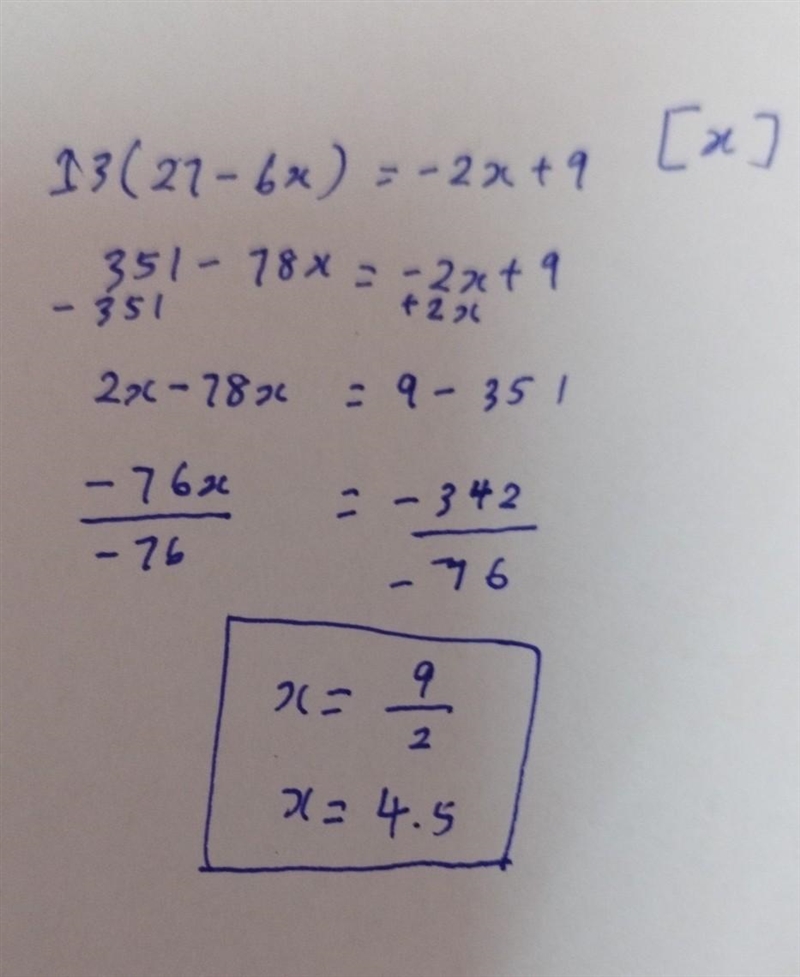 13(27-6x) = -2x+9 [x]
351 - 78x = -2x+9
-351 +2x
2x-78x = 9-351
-76x/-76 = -342/-76
x = 9/2
x = 4.5